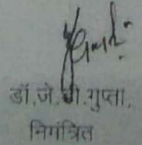 डॉ.जे.पी.गुप्ता,
निमंत्रित